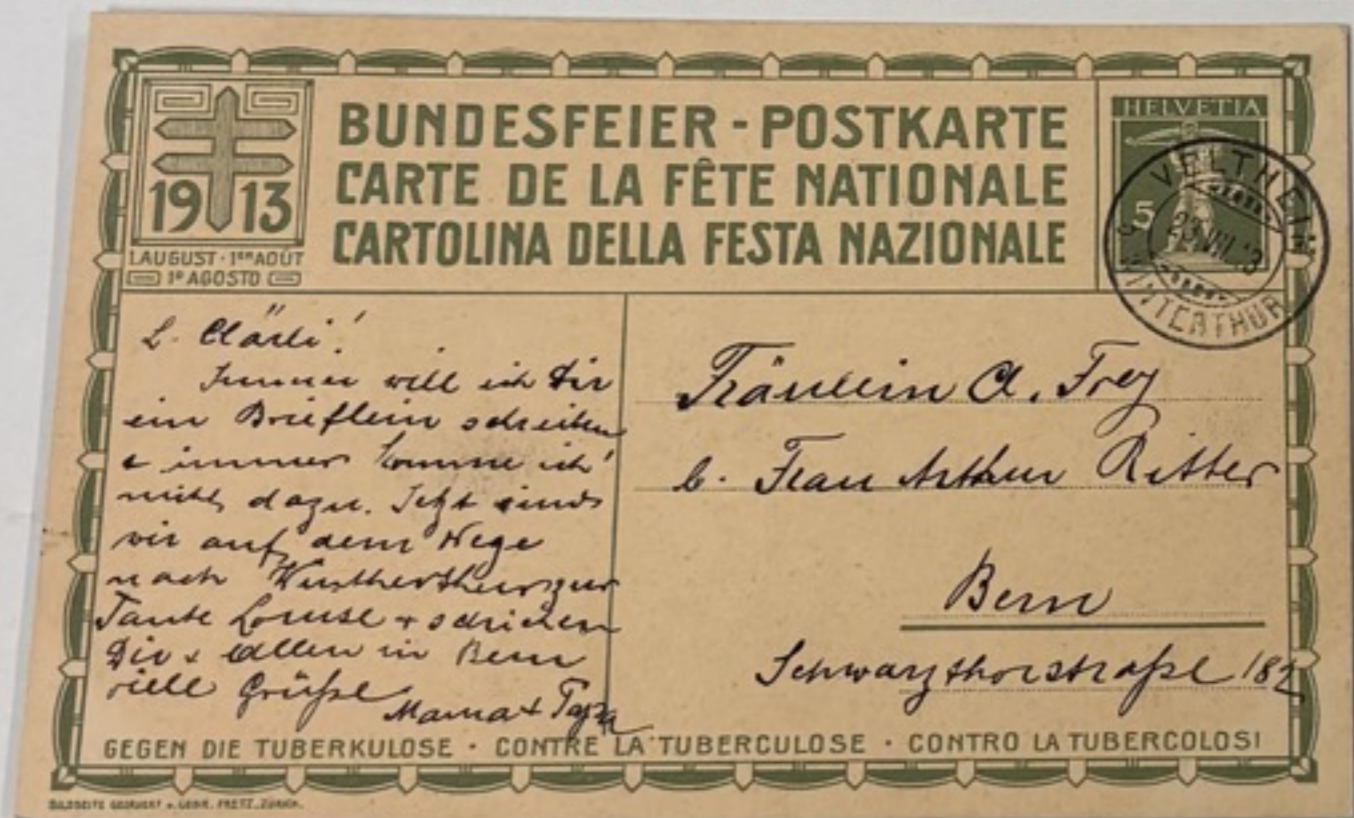 BUNDESFEIER - POSTKARTE
CARTE DE LA FÊTE NATIONALE
CARTOLINA DELLA FESTA NAZIONALE
19 13
1. AUGUST · 1ER AOÛT
1º AGOSTO
HELVETIA
5
VELTHEIM
23. VIII. 13
WINTERTHUR
L. Clärli!
Immer will ich Dir
ein Brieflein schreiben
& immer komme ich
nicht dazu. Jetzt sind
wir auf dem Wege
nach zur
Tante Louise +
Dir + Allen in Bern
viele Grüße
Mama + Papa
Fräulein Cl. Frey
b. Frau Arthur Ritter
Bern
Schwarzthorstraße 182
GEGEN DIE TUBERKULOSE · CONTRE LA TUBERCULOSE · CONTRO LA TUBERCOLOSI
BILDSEITE GEDRUCKT v. GEBR. FRETZ, ZÜRICH.